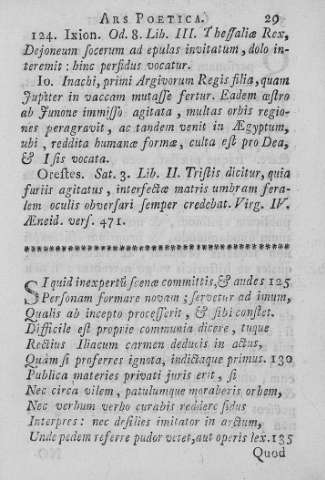 ARS POETICA. 29
124. Ixion. Od. 8. Lib. III. Thessaliæ Rex,
Dejoneum socerum ad epulas invitatum, dolo in-
teremit: hinc perfidus vocatur.
Io. Inachi, primi Argivorum Regis filia, quam
Jupiter in vaccam mutasse fertur. Eadem œstro
ab Junone immisso agitata, multas orbis regio-
nes peragravit, ac tandem venit in Ægyptum,
ubi, reddita humanæ formæ, culta est pro Dea,
& Isis vocata.
Orestes. Sat. 3. Lib. II. Tristis dicitur, quia
furiis agitatus, interfectæ matris umbram fera-
lem oculis obversari semper credebat. Virg. IV.
Æneid. vers. 471.
SI quid inexpertũ scenæ committis, & audes 125
Personam formare novam; servetur ad imum,
Qualis ab incepto processerit, & sibi constet.
Difficile est proprie communia dicere, tuque
Rectius Iliacum carmen deducis in actus,
Quàm si proferres ignota, indictaque primus. 130
Publica materies privati juris erit, si
Nec circa vilem, patulumque moraberis orbem,
Nec verbum verbo curabis reddere fidus
Interpres: nec desilies imitator in arctum,
Unde pedem referre pudor vetet, aut operis lex. 135
Quod